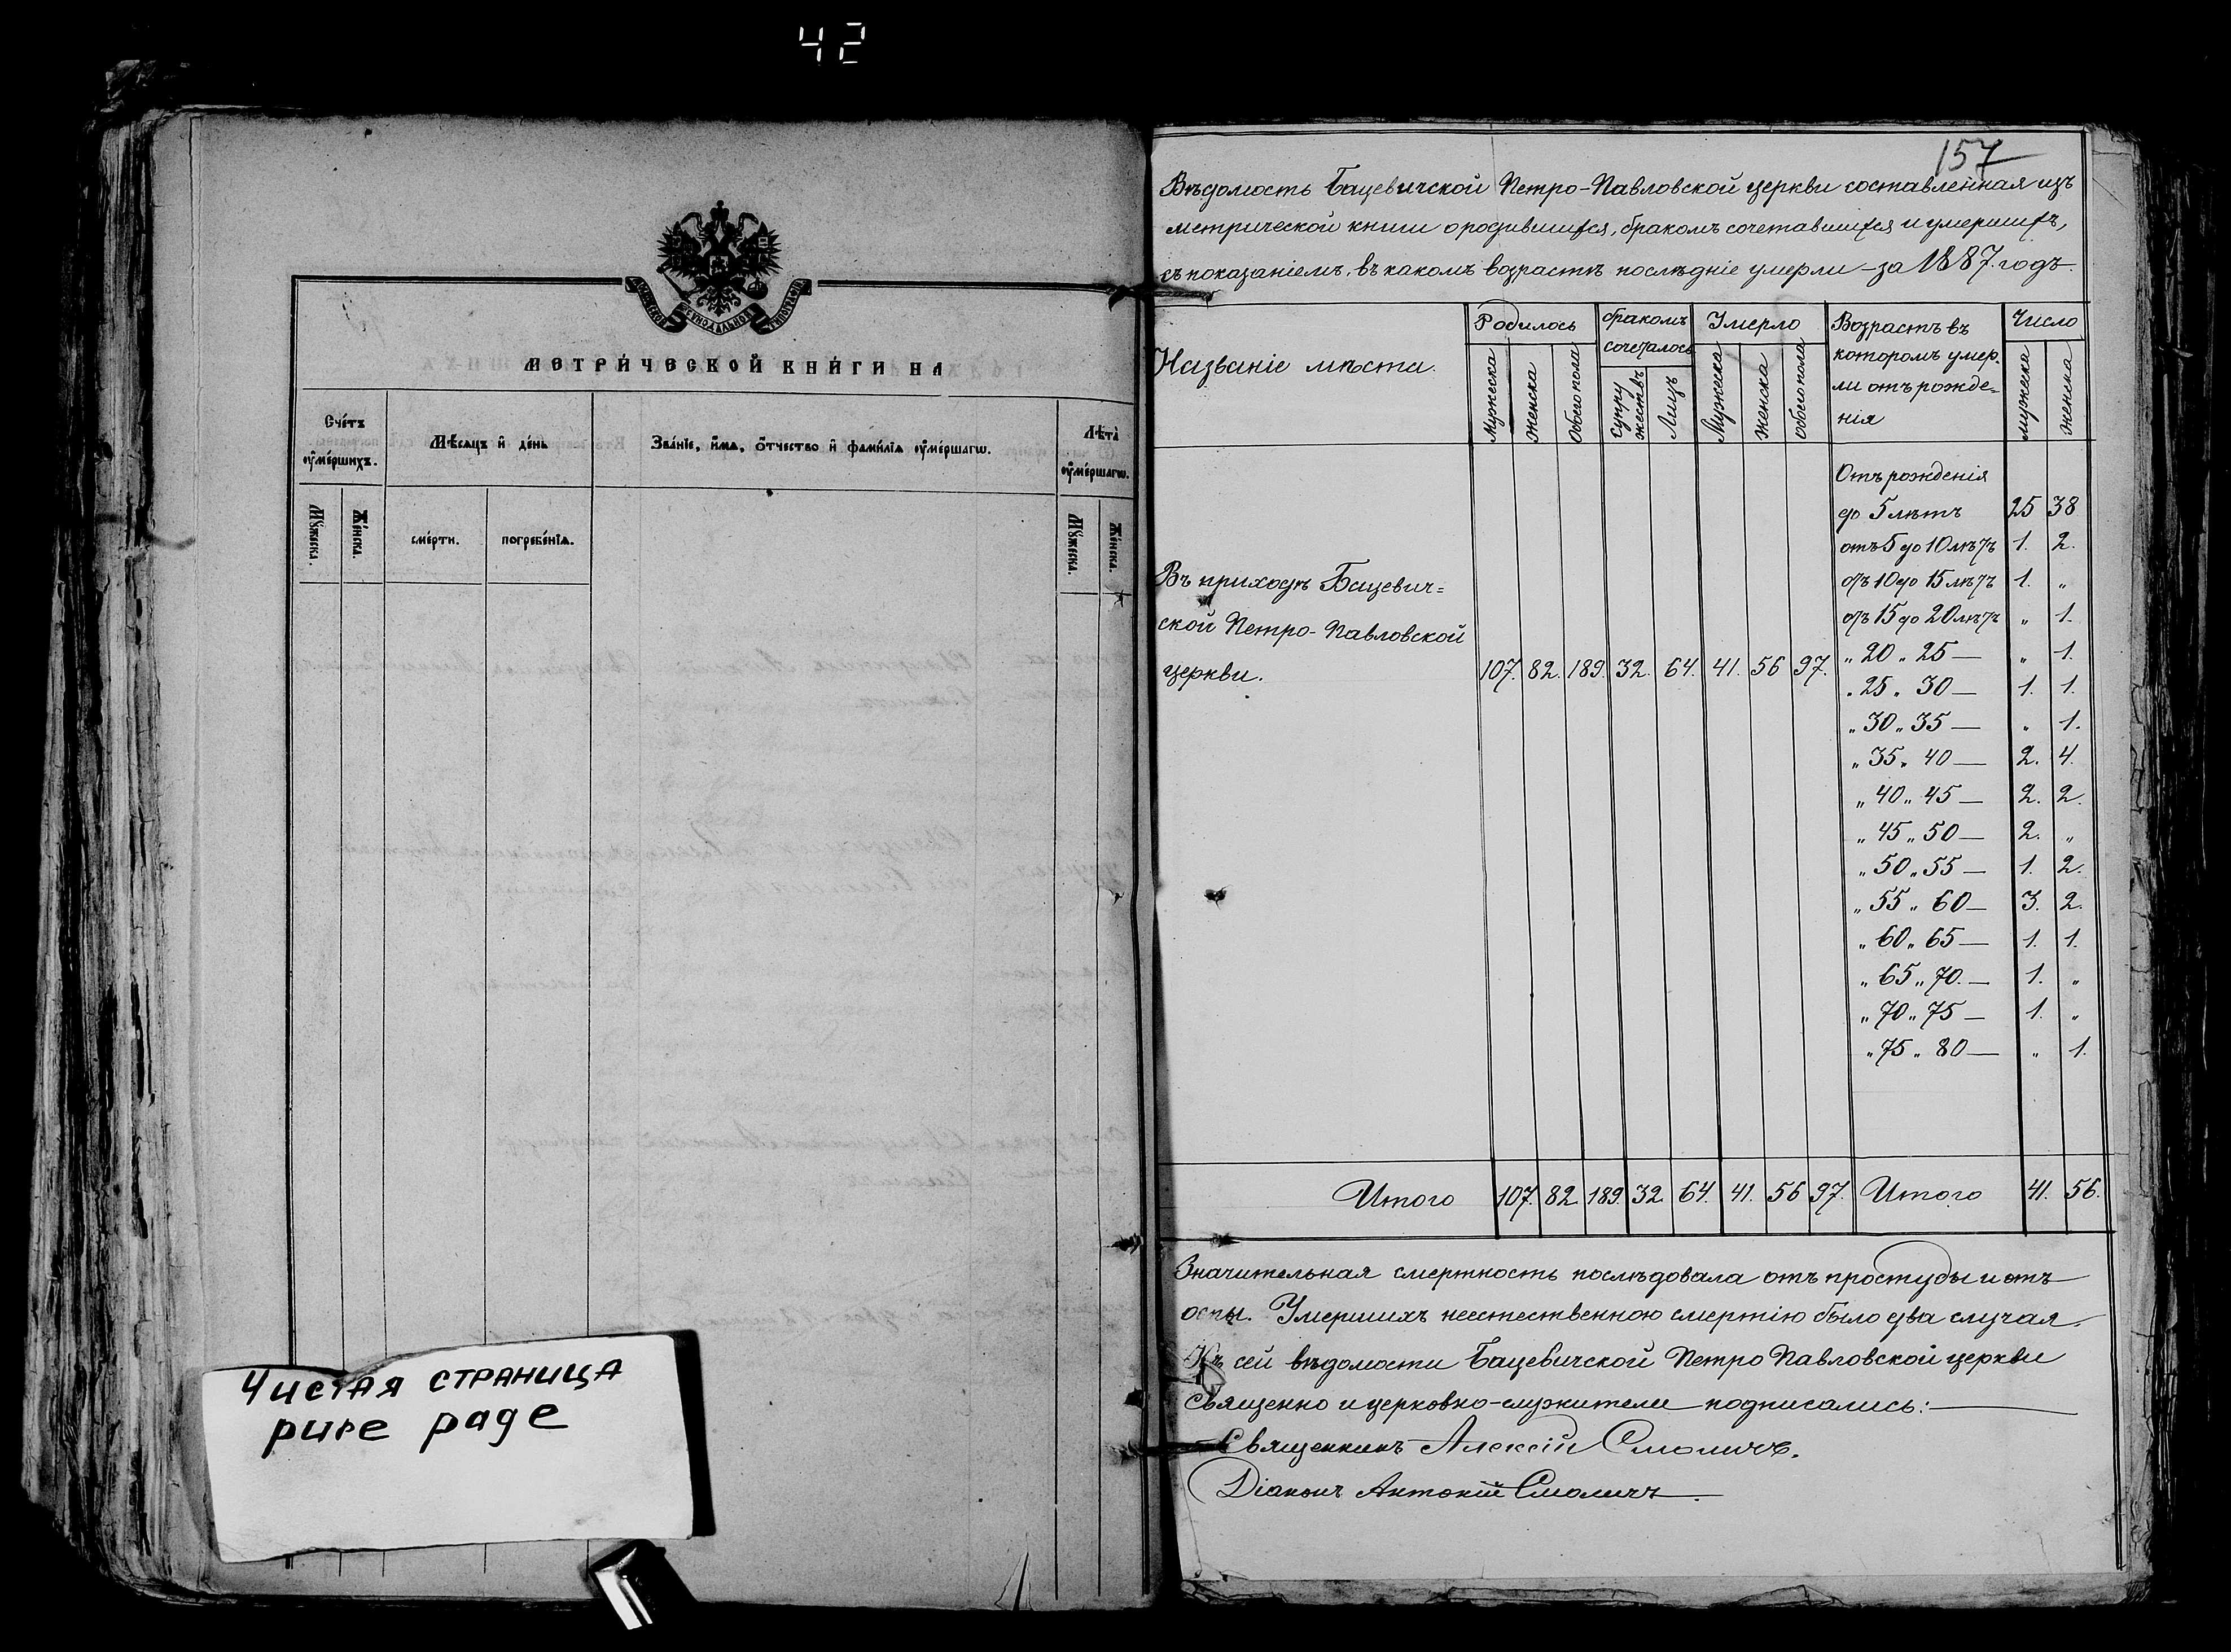 42
МЕТРИ́ЧЕСКОЙ КНИ́ГИ НА
Сче́тъ ᲂу҆ме́ршихъ.
Мѣ́сяцъ и҆ де́нь
Зва́нїе, и҆́мѧ, ѻ҆́тчество и҆ фами́лїѧ ᲂу҆ме́ршагѡ.
Лѣта̀ ᲂу҆ме́ршагѡ.
Мꙋ́жеска.
Же́нска.
сме́рти.
погребе́нїѧ.
Мꙋ́жеска.
Же́нска.
Чистая страница
pure page
157
Вѣдомость Бацевичской Петро-Павловской церкви составленная изъ
метрической книги о родившихся, бракомъ сочетавшихся и умершихъ,
съ показаніемъ, въ какомъ возрастѣ послѣдніе умерли - за 1887. годъ.
Названіе мѣста.
Родилось
бракомъ сочеталось
Умерло
Возрастъ въ
которомъ умер-
ли отъ рожде=
нія
Число
Мужеска
Женска
Обоего пола
Супружествъ
Лицъ
Мужеска
Женска
Обоего пола
мужеска
женска
Отъ рожденія
до 5 лѣтъ 25 38
отъ 5 до 10 лѣтъ 1. 2.
отъ 10 до 15 лѣтъ 1. „
отъ 15 до 20 лѣтъ „ 1.
„ 20 „ 25 — „ 1.
„ 25 „ 30 — 1. 1.
„ 30 „ 35 — „ 1.
„ 35 „ 40 — 2. 4.
„ 40 „ 45 — 2. 2.
„ 45 „ 50 — 2. „
„ 50 „ 55 — 1. 2.
„ 55 „ 60 — 3. 2.
„ 60 „ 65 — 1. 1.
„ 65 „ 70. — 1. „
„ 70 „ 75 — 1. „
„ 75 „ 80 — „ 1.
Въ приходѣ Бацевич=
ской Петро-Павловской
церкви. 107. 82. 189. 32. 64. 41. 56 97.
Итого 107. 82 189. 32 64. 41. 56 97. Итого 41. 56.
Значительная смертность послѣдовала отъ простуды и отъ
оспы. Умершихъ неестественною смертію было два случая.
Къ сей вѣдомости Бацевичской Петро Павловской церкви
священно и церковно-служители подписались: —
Священникъ Алексій Смоличъ.
Діаконъ Антоній Смоличъ.